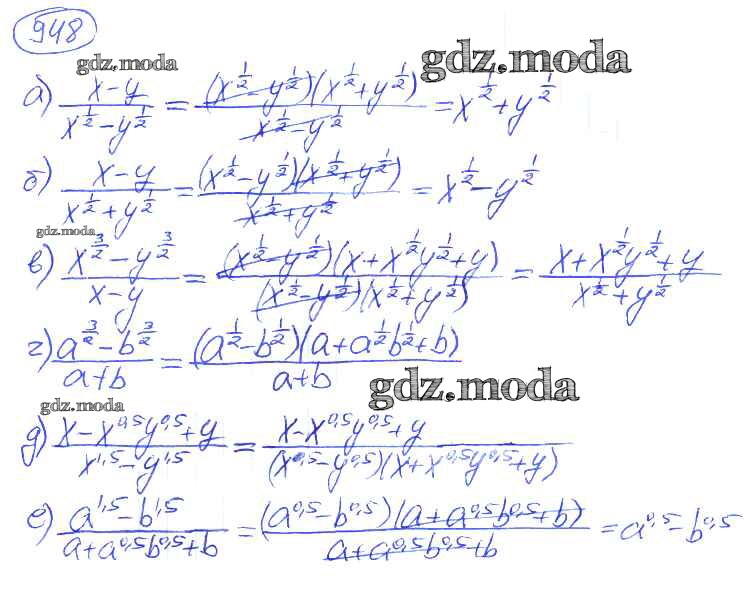 948
gdz.moda
gdz.moda
а) (x-y)/(x^(1/2)-y^(1/2)) = ((x^(1/2)-y^(1/2))(x^(1/2)+y^(1/2)))/(x^(1/2)-y^(1/2)) = x^(1/2)+y^(1/2)
б) (x-y)/(x^(1/2)+y^(1/2)) = ((x^(1/2)-y^(1/2))(x^(1/2)+y^(1/2)))/(x^(1/2)+y^(1/2)) = x^(1/2)-y^(1/2)
gdz.moda
в) (x^(3/2)-y^(3/2))/(x-y) = ((x^(1/2)-y^(1/2))(x+x^(1/2)y^(1/2)+y))/((x^(1/2)-y^(1/2))(x^(1/2)+y^(1/2))) = (x+x^(1/2)y^(1/2)+y)/(x^(1/2)+y^(1/2))
г) (a^(3/2)-b^(3/2))/(a+b) = ((a^(1/2)-b^(1/2))(a+a^(1/2)b^(1/2)+b))/(a+b)
gdz.moda
gdz.moda
д) (x-x^0,5y^0,5+y)/(x^1,5-y^1,5) = (x-x^0,5y^0,5+y)/((x^0,5-y^0,5)(x+x^0,5y^0,5+y))
е) (a^1,5-b^1,5)/(a+a^0,5b^0,5+b) = ((a^0,5-b^0,5)(a+a^0,5b^0,5+b))/(a+a^0,5b^0,5+b) = a^0,5-b^0,5